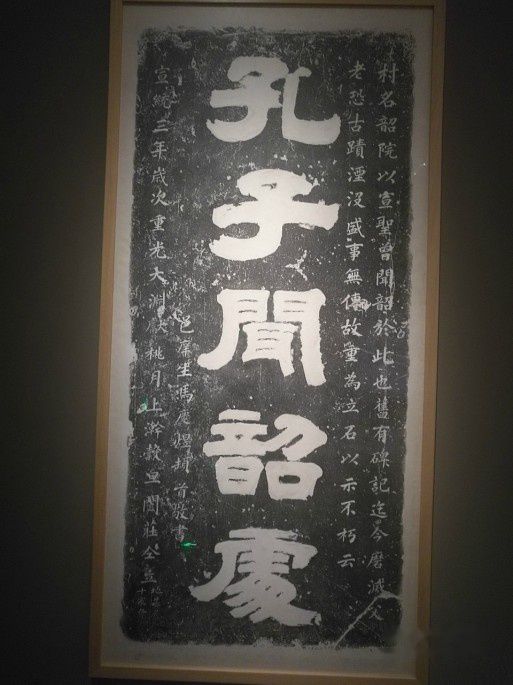 村名韶院以宣聖曾聞韶於此也舊有碑記迄今磨滅父
老恐古蹟湮沒盛事無傳故重為立石以示不朽云
孔子聞韶處
邑庠生馮 頓首敬書
宣統三年歲次重光大淵獻桃月上澣穀旦闔莊公立